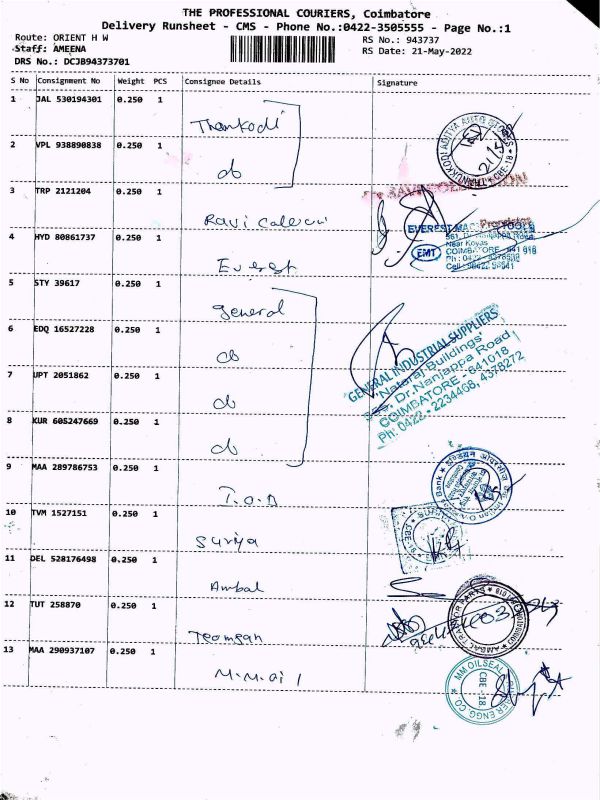 THE PROFESSIONAL COURIERS, Coimbatore
Delivery Runsheet - CMS - Phone No.:0422-3505555 - Page No.:1
Route: ORIENT H W
RS No.: 943737
Staff: AMEENA
RS Date: 21-May-2022
DRS No.: DCJB94373701
S No Consignment No Weight PCS Consignee Details Signature
1 JAL 530194301 0.250 1
Thankodi
2 VPL 938890838 0.250 1
do
THANUKKODI ADITYA AUTO STORES CBE-18
3 TRP 2121204 0.250 1
Ravi
Proprietor
4 HYD 80861737 0.250 1
Everest
EVEREST
Near Koyas
COIMBATORE - 641 018
EMT
5 STY 39617 0.250 1
general
6 EDQ 16527228 0.250 1
do
GENERAL INDUSTRIAL SUPPLIERS
'Nataraj Buildings'
Dr. Nanjappa Road,
COIMBATORE - 641018
Ph: 0422 - 2234468, 4378272
7 UPT 2051862 0.250 1
do
8 KUR 605247669 0.250 1
do
9 MAA 289786753 0.250 1
I.O.B
Bank
10 TVM 1527151 0.250 1
Suriya
11 DEL 528176498 0.250 1
Ambal
12 TUT 258870 0.250 1
AMBAL TRACTOR PARTS
13 MAA 290937107 0.250 1
M.M.oil
MM OILSEAL
ENGG CO.
CBE -18